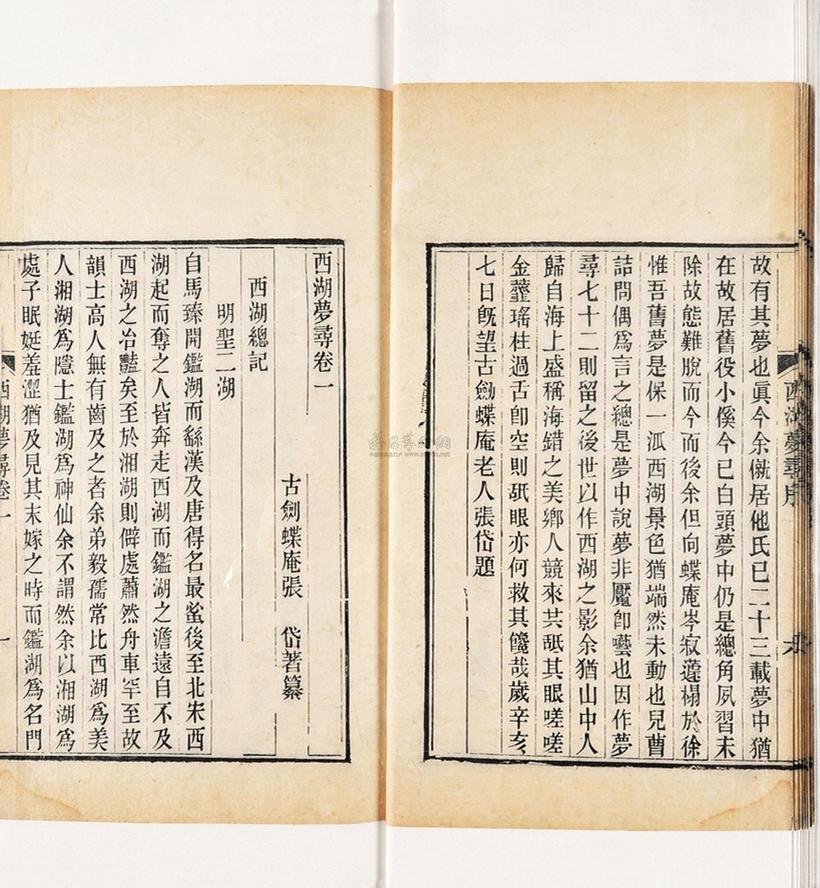 故有其夢也眞今余僦居他氏已二十三載夢中猶
在故居舊役小傒今已白頭夢中仍是總角夙習未
除故態難脫而今而後余但向蝶庵岑寂蘧榻於徐
惟吾舊夢是保一派西湖景色猶端然未動也兒曹
詰問偶爲言之總是夢中說夢非魘卽囈也因作夢
尋七十二則留之後世以作西湖之影余猶山中人
歸自海上盛稱海錯之美鄉人競來共舐其眼嗟嗟
金虀瑤柱過舌卽空則舐眼亦何救其饞哉歲辛亥
七月旣望古劍蝶庵老人張岱題
西湖夢尋序
西湖夢尋卷一
古劍蝶庵張 岱著纂
西湖總記
明聖二湖
自馬臻開鑑湖而繇漢及唐得名最蚤後至北宋西
湖起而奪之人皆奔走西湖而鑑湖之澹遠自不及
西湖之冶豔矣至於湘湖則僻處蕭然舟車罕至故
韻士高人無有齒及之者余弟毅孺常比西湖爲美
人湘湖爲隱士鑑湖爲神仙余不謂然余以湘湖爲
處子眠娗羞澀猶及見其未嫁之時而鑑湖爲名門
西湖夢尋卷一
一